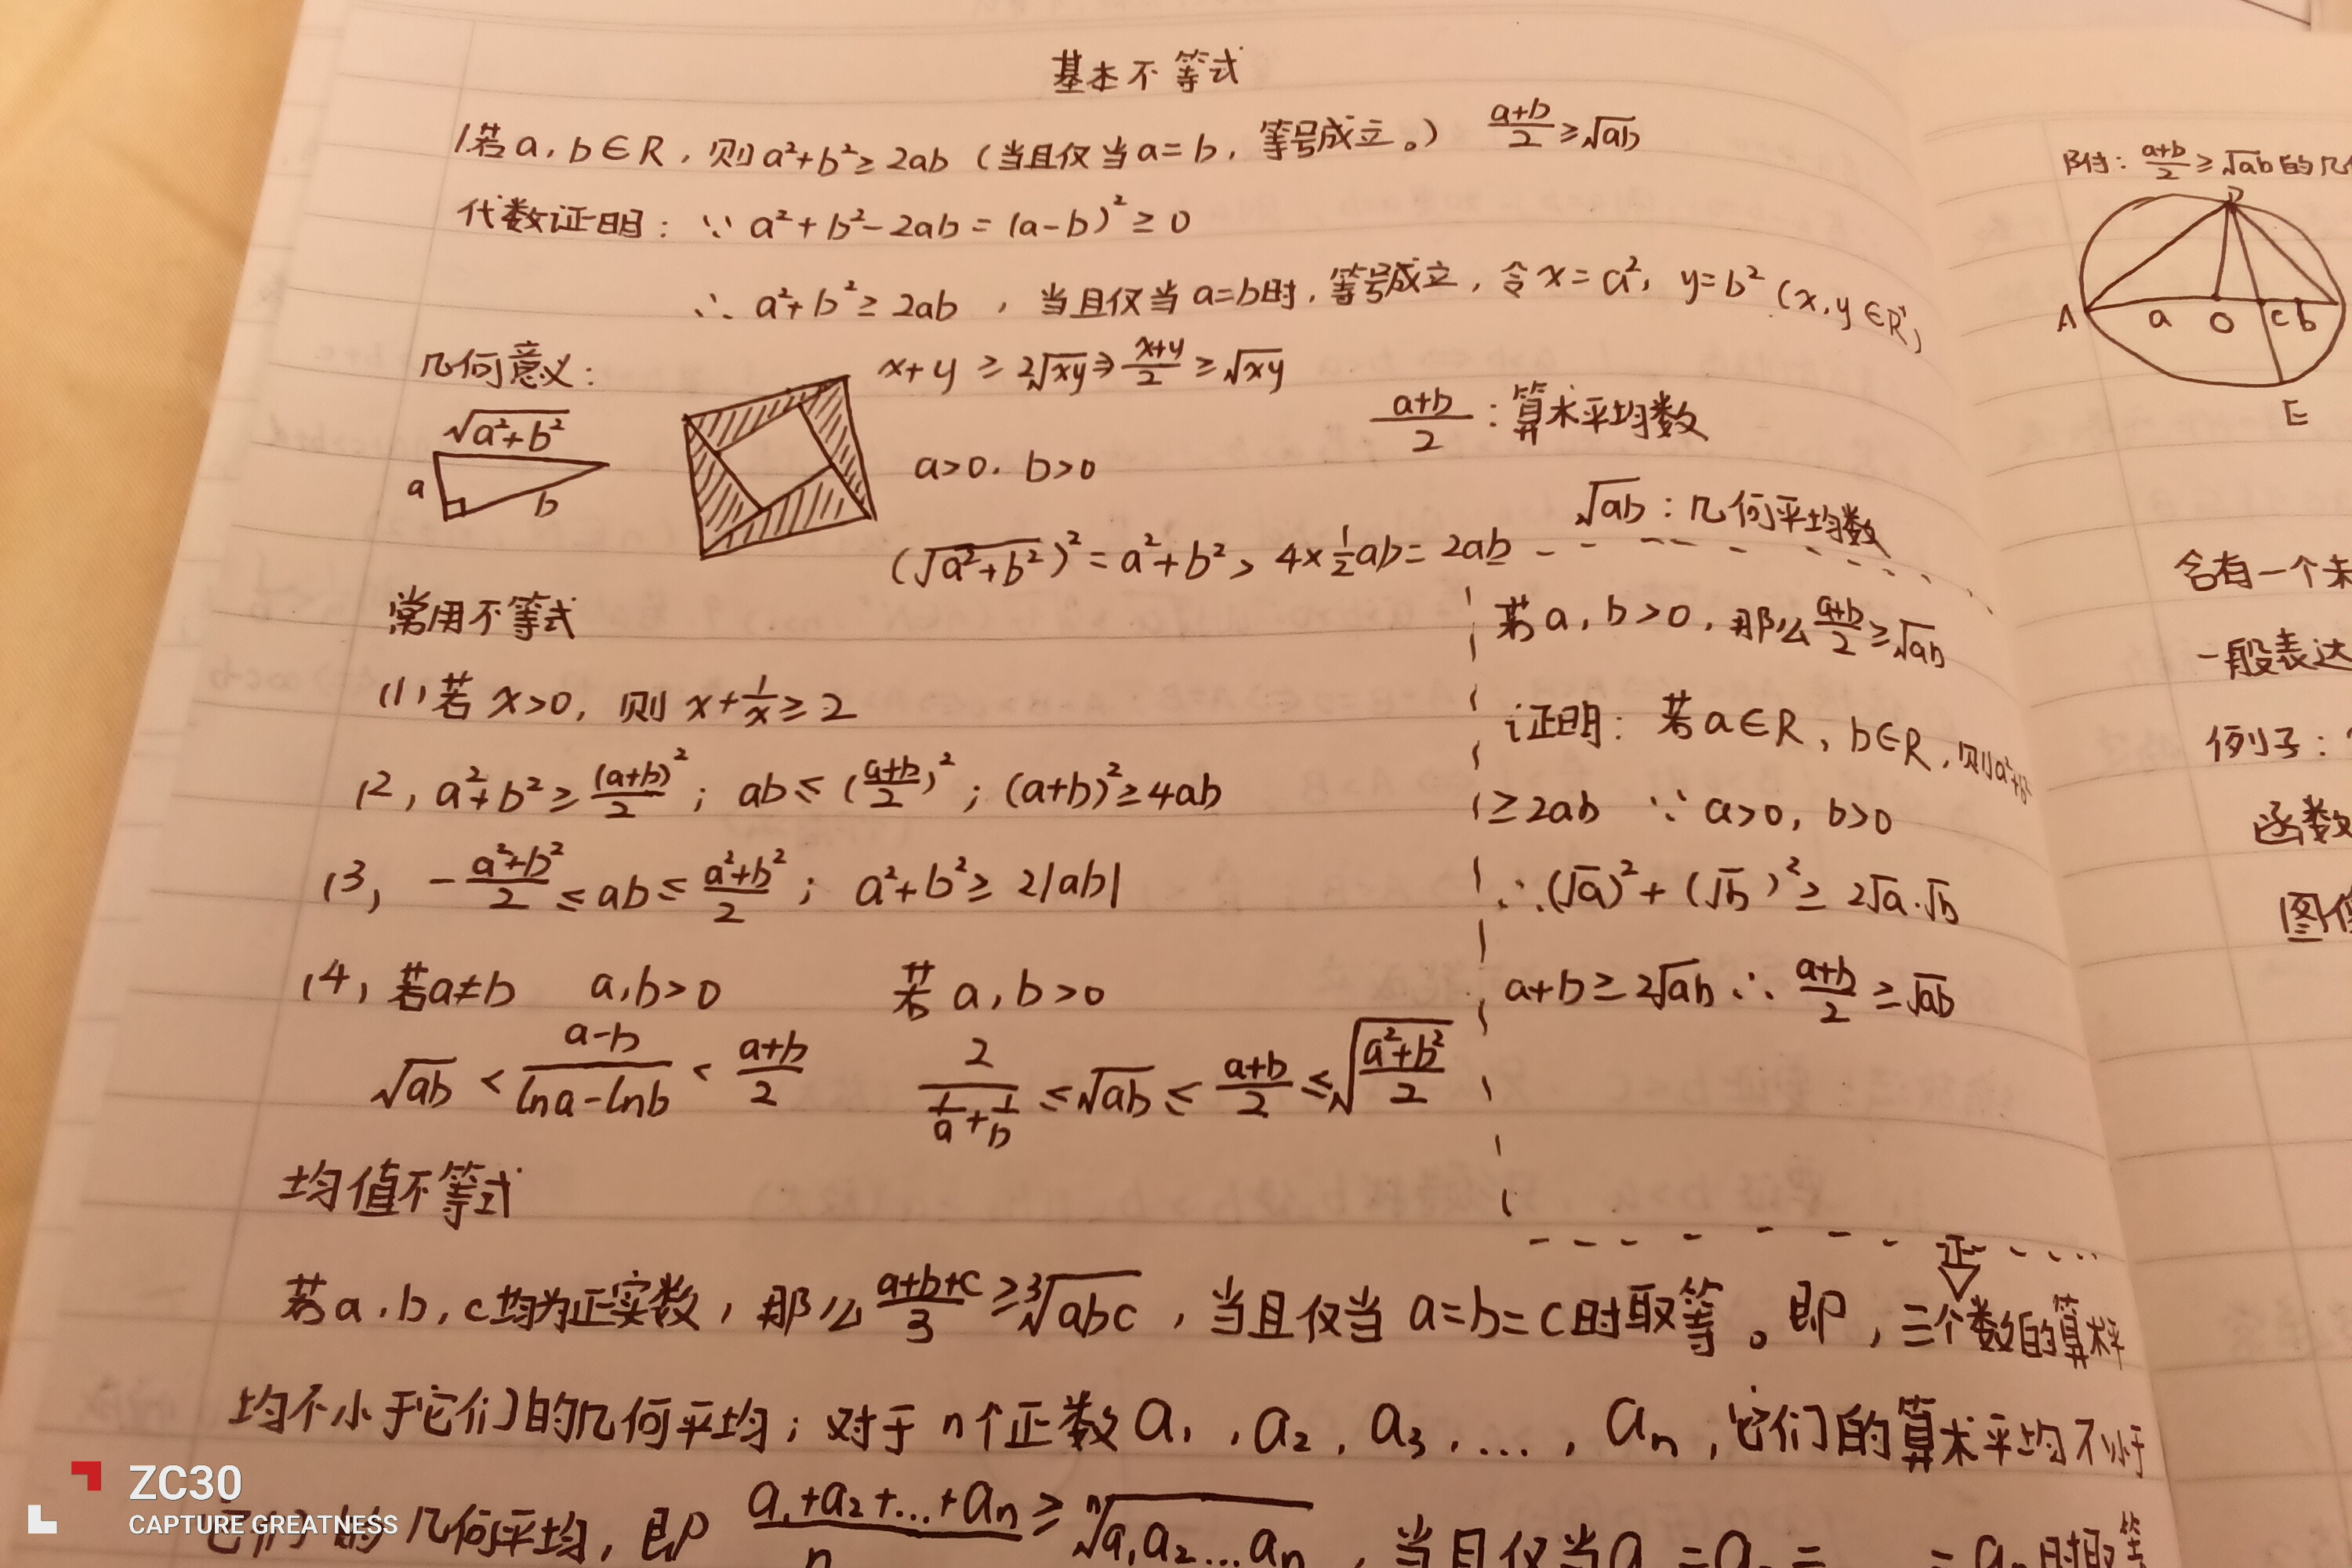 基本不等式
1.若a,b∈R,则a²+b²≥2ab(当且仅当a=b,等号成立。) (a+b)/2≥√ab
代数证明:∵ a²+b²-2ab=(a-b)²≥0
∴ a²+b²≥2ab,当且仅当a=b时,等号成立,令x=a²,y=b²(x,y∈R⁺)
几何意义: x+y≥2√xy⇒(x+y)/2≥√xy
(a+b)/2:算术平均数
√(a²+b²)
a
b
a>0.b>0
√ab:几何平均数
(√(a²+b²))²=a²+b²>4×1/2ab=2ab
常用不等式
(1)若x>0,则x+1/x≥2
(2)a²+b²≥(a+b)²/2;ab≤((a+b)/2)²;(a+b)²≥4ab
(3)-(a²+b²)/2≤ab≤(a²+b²)/2;a²+b²≥2|ab|
(4)若a≠b a,b>0 若a,b>0
√ab<(a-b)/(lna-lnb)<(a+b)/2 2/(1/a+1/b)≤√ab≤(a+b)/2≤√((a²+b²)/2)
若a,b>0,那么(a+b)/2≥√ab
证明:若a∈R,b∈R,则a²+b²
≥2ab ∵a>0,b>0
∴(√a)²+(√b)²≥2√a·√b
a+b≥2√ab∴(a+b)/2≥√ab
均值不等式
正
若a,b,c均为正实数,那么(a+b+c)/3≥³√abc,当且仅当a=b=c时取等。即,三个数的算术平
均不小于它们的几何平均;对于n个正数a₁,a₂,a₃,...,aₙ,它们的算术平均不小于
它们的几何平均,即(a₁+a₂+...+aₙ)/n≥ⁿ√(a₁a₂...aₙ),当且仅当a₁=a₂=...=aₙ时取等
附:(a+b)/2≥√ab的几
D
A a O C b
E
含有一个未
一般表达
例子:
函数
图像
ZC30
CAPTURE GREATNESS